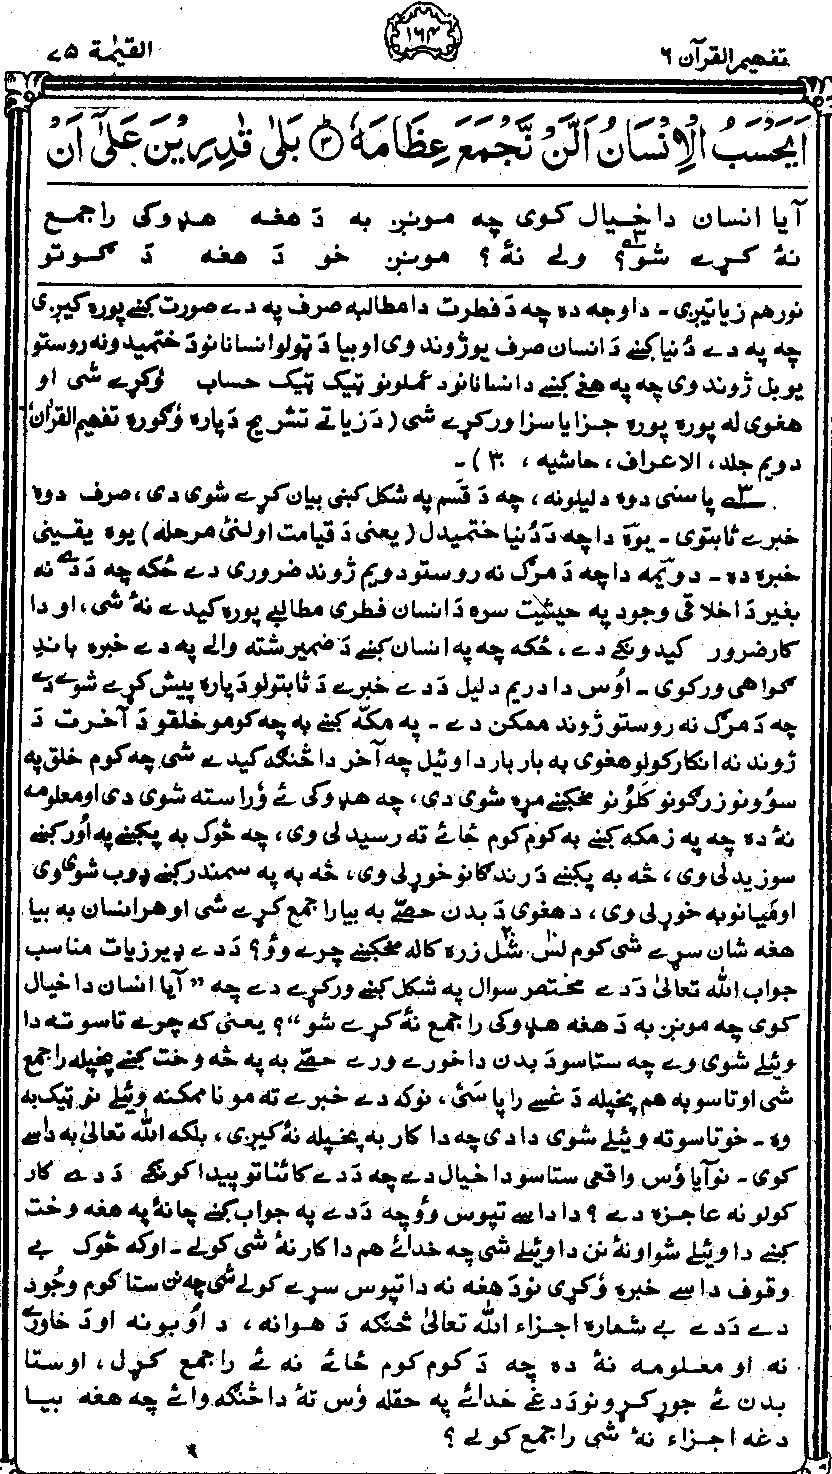 تفهیم القرآن ۶
۱۶۴
القیٰمة ۷۵
اَیَحْسَبُ الْاِنْسَانُ اَلَّنْ نَّجْمَعَ عِظَامَهٗ ۝۳ بَلٰی قٰدِرِیْنَ عَلٰۤی اَنْ
آیا انسان دا خیال کوی چه مونږ به دَ هغه هډوکی راجمع
نهٔ کړے شو؟ ولے نهٔ؟ مونږ خو دَ هغه دَ ګوتو
نور هم زیاتیږی ـ دا وجه ده چه دَ فطرت دا مطالبه صرف په دے صورت کښے پوره کیږی
چه په دے دُنیا کښے دَ انسان صرف یو ژوند وی او بیا دَ ټولو انسانانو دَ ختمیدو نه روستو
یو بل ژوند وی چه په هغے کښے د انسانانو د عملونو ټیک ټیک حساب وُکړے شی او
هغوی له پوره پوره جزا یا سزا ورکړے شی (دَ زیاتے تشریح دَ پاره وُګوره تفهیم القرآن
دویم جلد، الاعراف، حاشیه، ۳۰) ـ
۳ے پاسنی دوه دلیلونه، چه دَ قَسم په شکل کښی بیان کړے شوی دی، صرف دوه
خبرے ثابتوی ـ یوه دا چه دَ دُنیا ختمیدل (یعنی دَ قیامت اولنئ مرحله) یوه یقینی
خبره ده ـ دویمه دا چه دَ مرګ نه روستو دویم ژوند ضروری دے ځکه چه دَ دے نه
بغیر دَ اخلاقی وجود په حیثیت سره دَ انسان فطری مطالبے پوره کیدے نهٔ شی، او دا
کار ضرور کیدونکے دے، ځکه چه په انسان کښے دَ ضمیر شته والے په دے خبره باندِ
ګواهی ورکوی ـ اوُس دا دریم دلیل دَ دے خبرے دَ ثابتولو دَ پاره پیش کړے شوے دے
چه دَ مرګ نه روستو ژوند ممکن دے ـ په مکّه کښے به چه کومو خلقو دَ آخرت دَ
ژوند نه انکار کولو هغوی به بار بار دا وئیل چه آخر دا څنګه کیدے شی چه کوم خلق په
سوُونو زرګونو کلُونو مخکښے مړه شوی دی، چه هډوکی ئے وُراسته شوی دی او معلومه
نهٔ ده چه په زمکه کښے به کوم کوم ځائے ته رسیدلی وی، چه څوک به پکښے په اُور کښے
سوزیدلی وی، څه به پکښے دَ رندګانو خوړلی وی، څه به په سمندر کښے ډوب شوی وی
او مَیانو به خوړلی وی، د هغوی دَ بدن حصّے به بیا راجمع کړے شی او هر انسان به بیا
هغه شان سړے شی کوم لس شل زره کاله مخکښے چرے وُو؟ دَ دے ډیر زیات مناسب
جواب الله تعالیٰ دَ دے مختصر سوال په شکل کښے ورکړے دے چه ”آیا انسان دا خیال
کوی چه مونږ به دَ هغه هډوکی راجمع نهٔ کړے شو“؟ یعنی که چرے تاسو ته دا
وئیلے شوی وے چه ستاسو دَ بدن دا خورے ورے حصّے به په څه وخت کښے پخپله راجمع
شی او تاسو به هم پخپله دَ غسے را پاسئ، نو که دے خبرے ته مو ناممکنه وئیلے نو ټیک به
وه ـ خو تاسو ته وئیلے شوی دا دی چه دا کار به پخپله نهٔ کیږی، بلکه الله تعالیٰ به داسے
کوی ـ نو آیا وُس واقعی ستاسو دا خیال دے چه دَ دے کائناتو پیدا کونکے دَ دے کار
کولو نه عاجزه دے؟ دا داسے تپوس وُو چه دَ دے په جواب کښے چا نهٔ په هغه وخت
کښے دا وئیلے شو او نهٔ نن دا وئیلے شی چه خدائے هم دا کار نهٔ شی کولے ـ او که څوک بے
وقوف داسے خبره وُکړی نو دَ هغه نه دا تپوس سړے کولے شی چه نن ستا کوم وجُود
دے دَ دے بے شماره اجزاء الله تعالیٰ څنګه دَ هوا نه، د اوُبو نه او دَ خاورے
نه او معلومه نهٔ ده چه دَ کوم کوم ځائے نه ئے راجمع کړل، او ستا
بدن ئے جوړ کړو نو دَ دغے خدائے په حقله وُس تهٔ دا څنګه وائے چه هغه بیا
دغه اجزاء نهٔ شی راجمع کولے؟